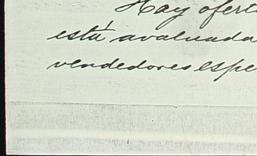 Hay ofert
está avaluada
vendedores espe